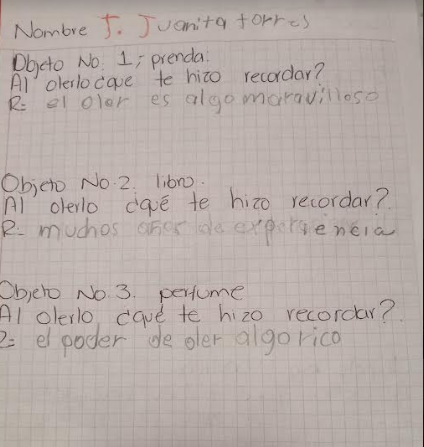 Nombre J. Juanita torres
Objeto No. 1; prenda:
Al olerlo ¿que te hizo recordar?
R= el oler es algo maravilloso
Objeto No. 2. libro.
Al olerlo ¿qué te hizo recordar?
R- muchos años de experiencia
Objeto No. 3. perfume
Al olerlo ¿qué te hizo recordar?
R= el poder de oler algo rico